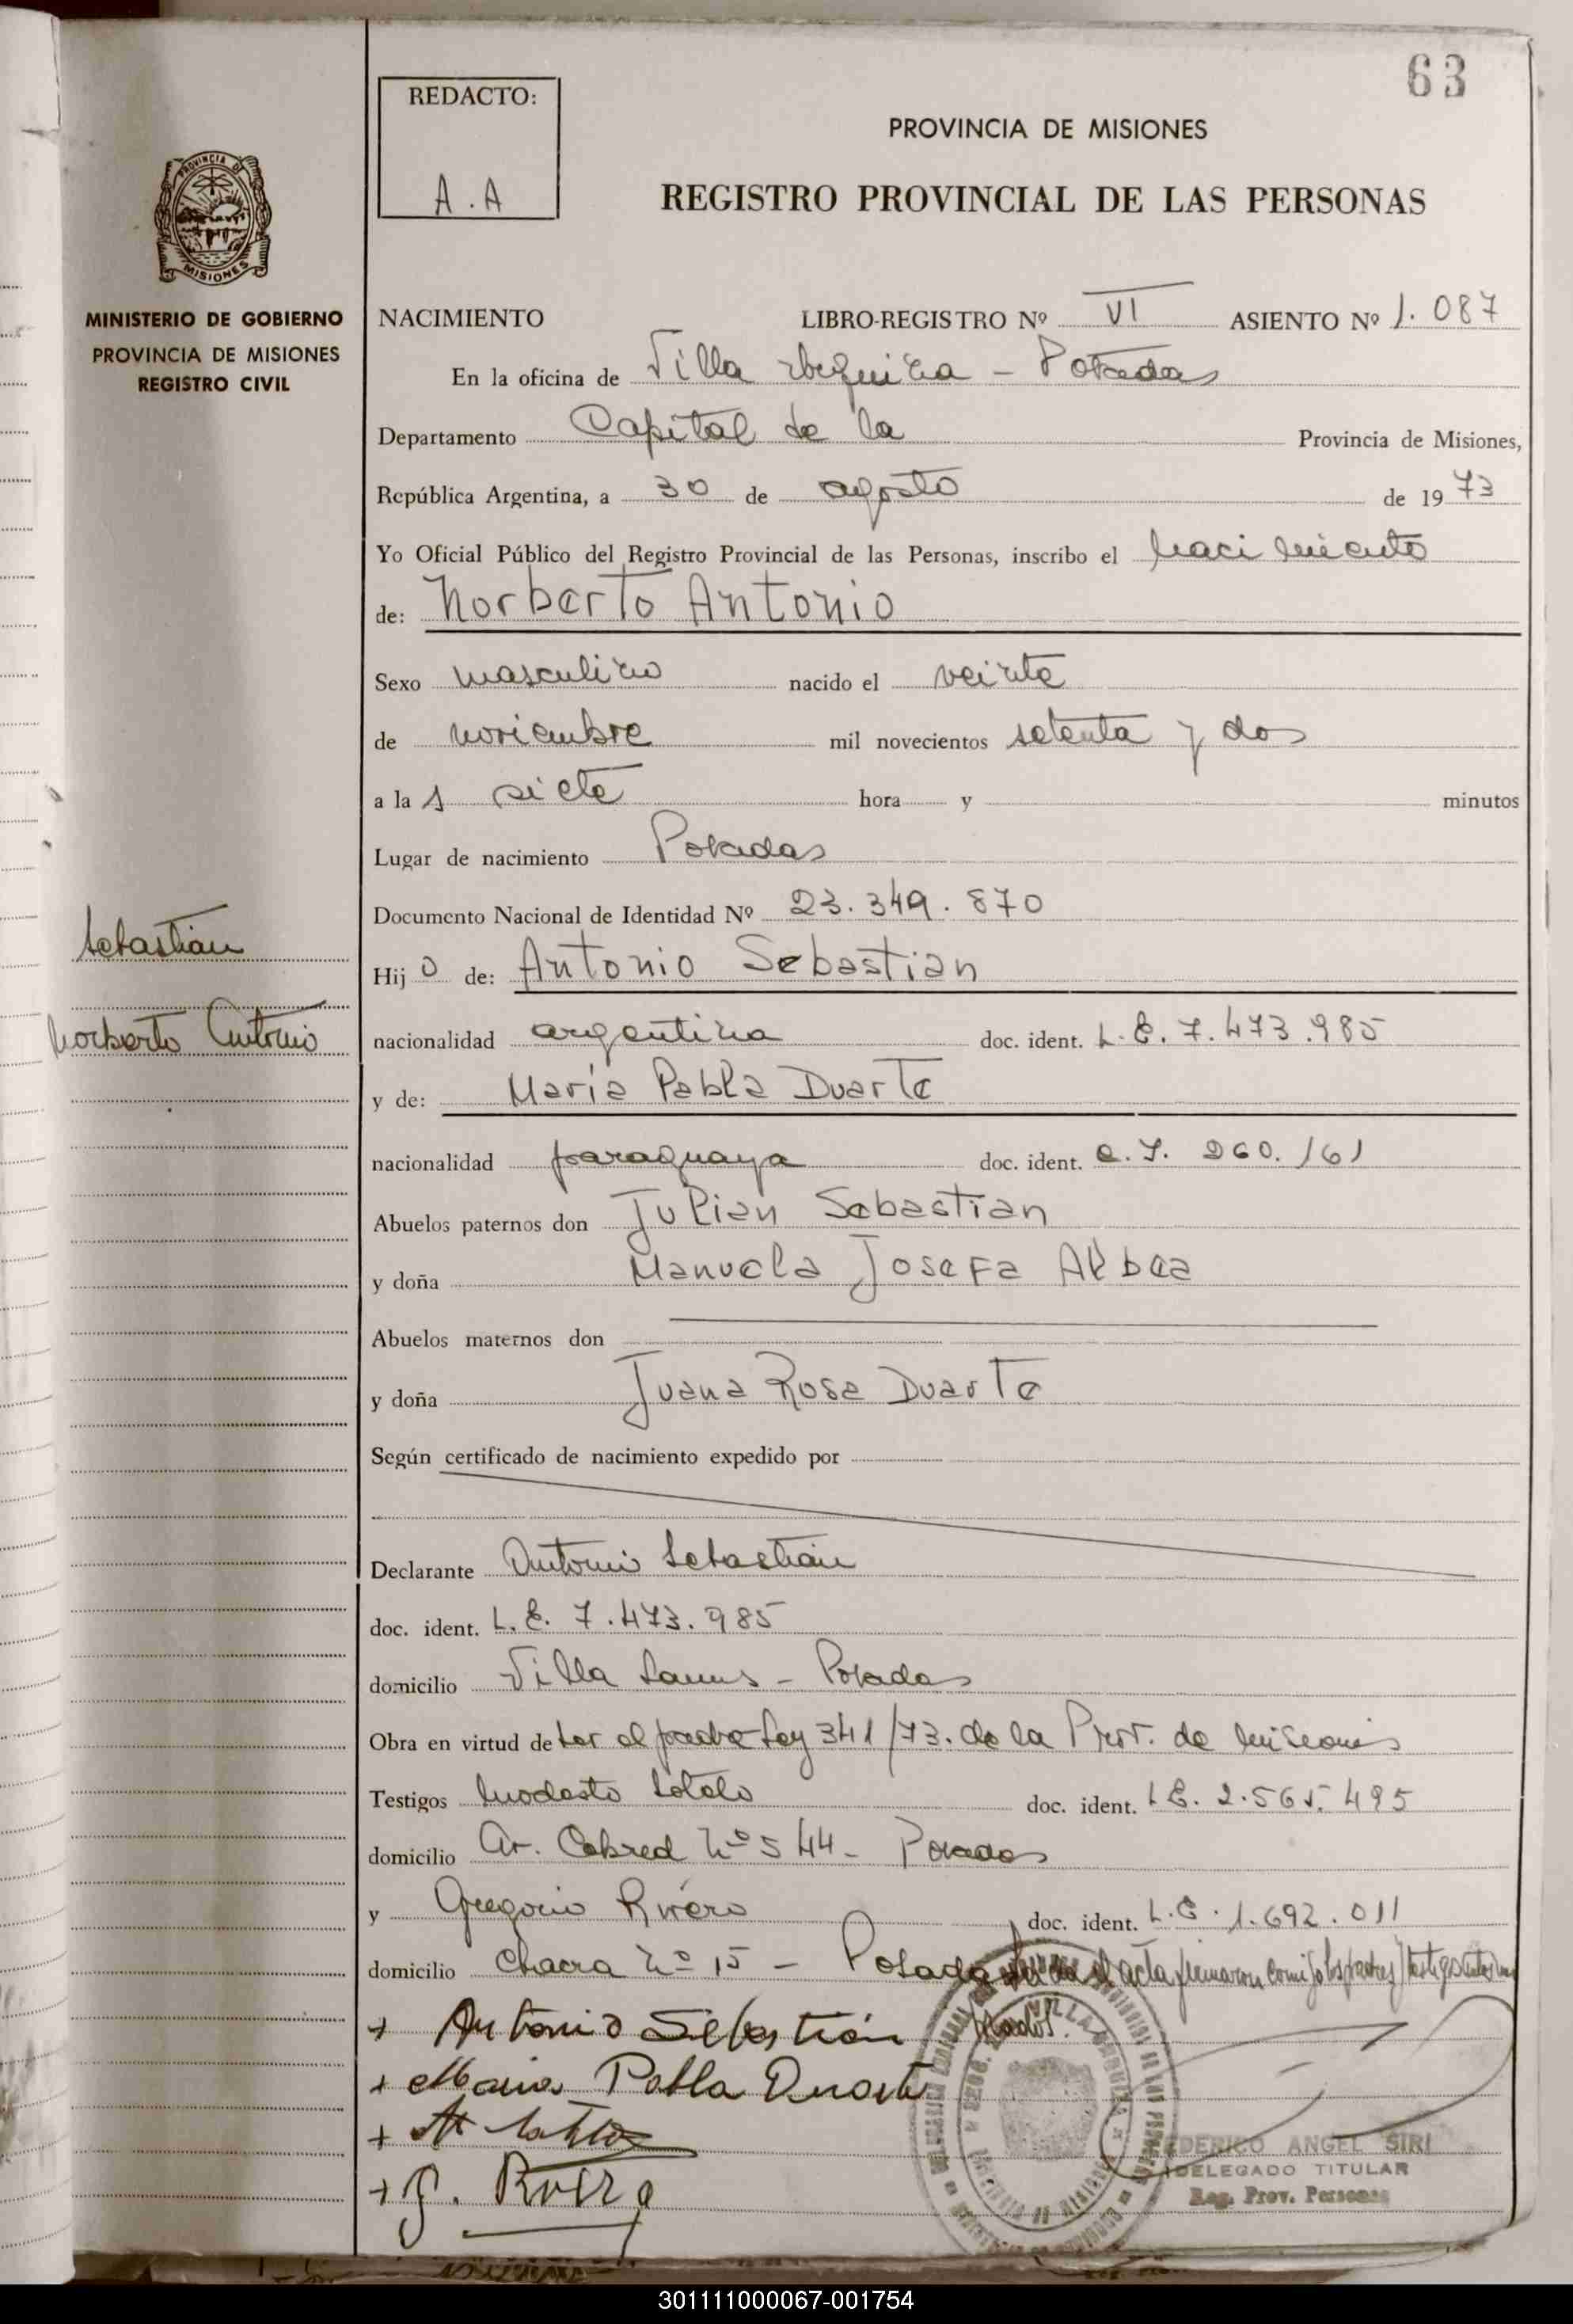 63
REDACTO:
A.A
PROVINCIA DE MISIONES
REGISTRO PROVINCIAL DE LAS PERSONAS
PROVINCIA DE
MISIONES
MINISTERIO DE GOBIERNO
PROVINCIA DE MISIONES
REGISTRO CIVIL
NACIMIENTO LIBRO-REGISTRO Nº VI ASIENTO Nº 1.087
En la oficina de Villa Urquiza - Posadas
Departamento Capital de la Provincia de Misiones,
República Argentina, a 30 de agosto de 1973
Yo Oficial Público del Registro Provincial de las Personas, inscribo el nacimiento
de: Norberto Antonio
Sexo masculino nacido el veinte
de noviembre mil novecientos setenta y dos
a las siete hora y minutos
Lugar de nacimiento Posadas
Documento Nacional de Identidad Nº 23.349.870
Sebastián
Hijo de: Antonio Sebastian
Norberto Antonio
nacionalidad argentina doc. ident. L.E. 7.473.985
y de: María Pabla Duarte
nacionalidad paraguaya doc. ident. C.I. 260.161
Abuelos paternos don Julian Sebastian
y doña Manuela Josefa
Abuelos maternos don
y doña Juana Rosa Duarte
Según certificado de nacimiento expedido por
Declarante Antonio Sebastián
doc. ident. L.E. 7.473.985
domicilio Villa Lanus - Posadas
Obra en virtud de ser el padre Ley 341/73. de la Prov. de Misiones
Testigos Modesto Sotelo doc. ident. L.E. 2.565.495
domicilio Av. Cabred Nº 544 - Posadas
y Gregorio Rivero doc. ident. L.E. 1.692.011
domicilio Chacra Nº 15 - Posadas acta firmaron conmigo los padres y testigos
+ Antonio Sebastián
+ Maria Pabla Duarte
+
+ G. Rivero
FEDERICO ANGEL SIRI
DELEGADO TITULAR
Reg. Prov. Personas
301111000067-001754